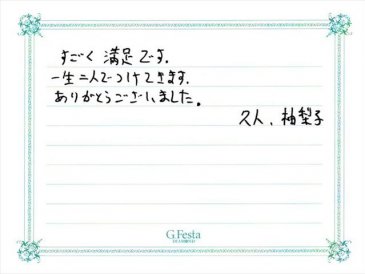 すごく 満足です.
一生二人でつけてきます.
ありがとうございました。
久人、柚梨子
G.Festa
DIAMOND